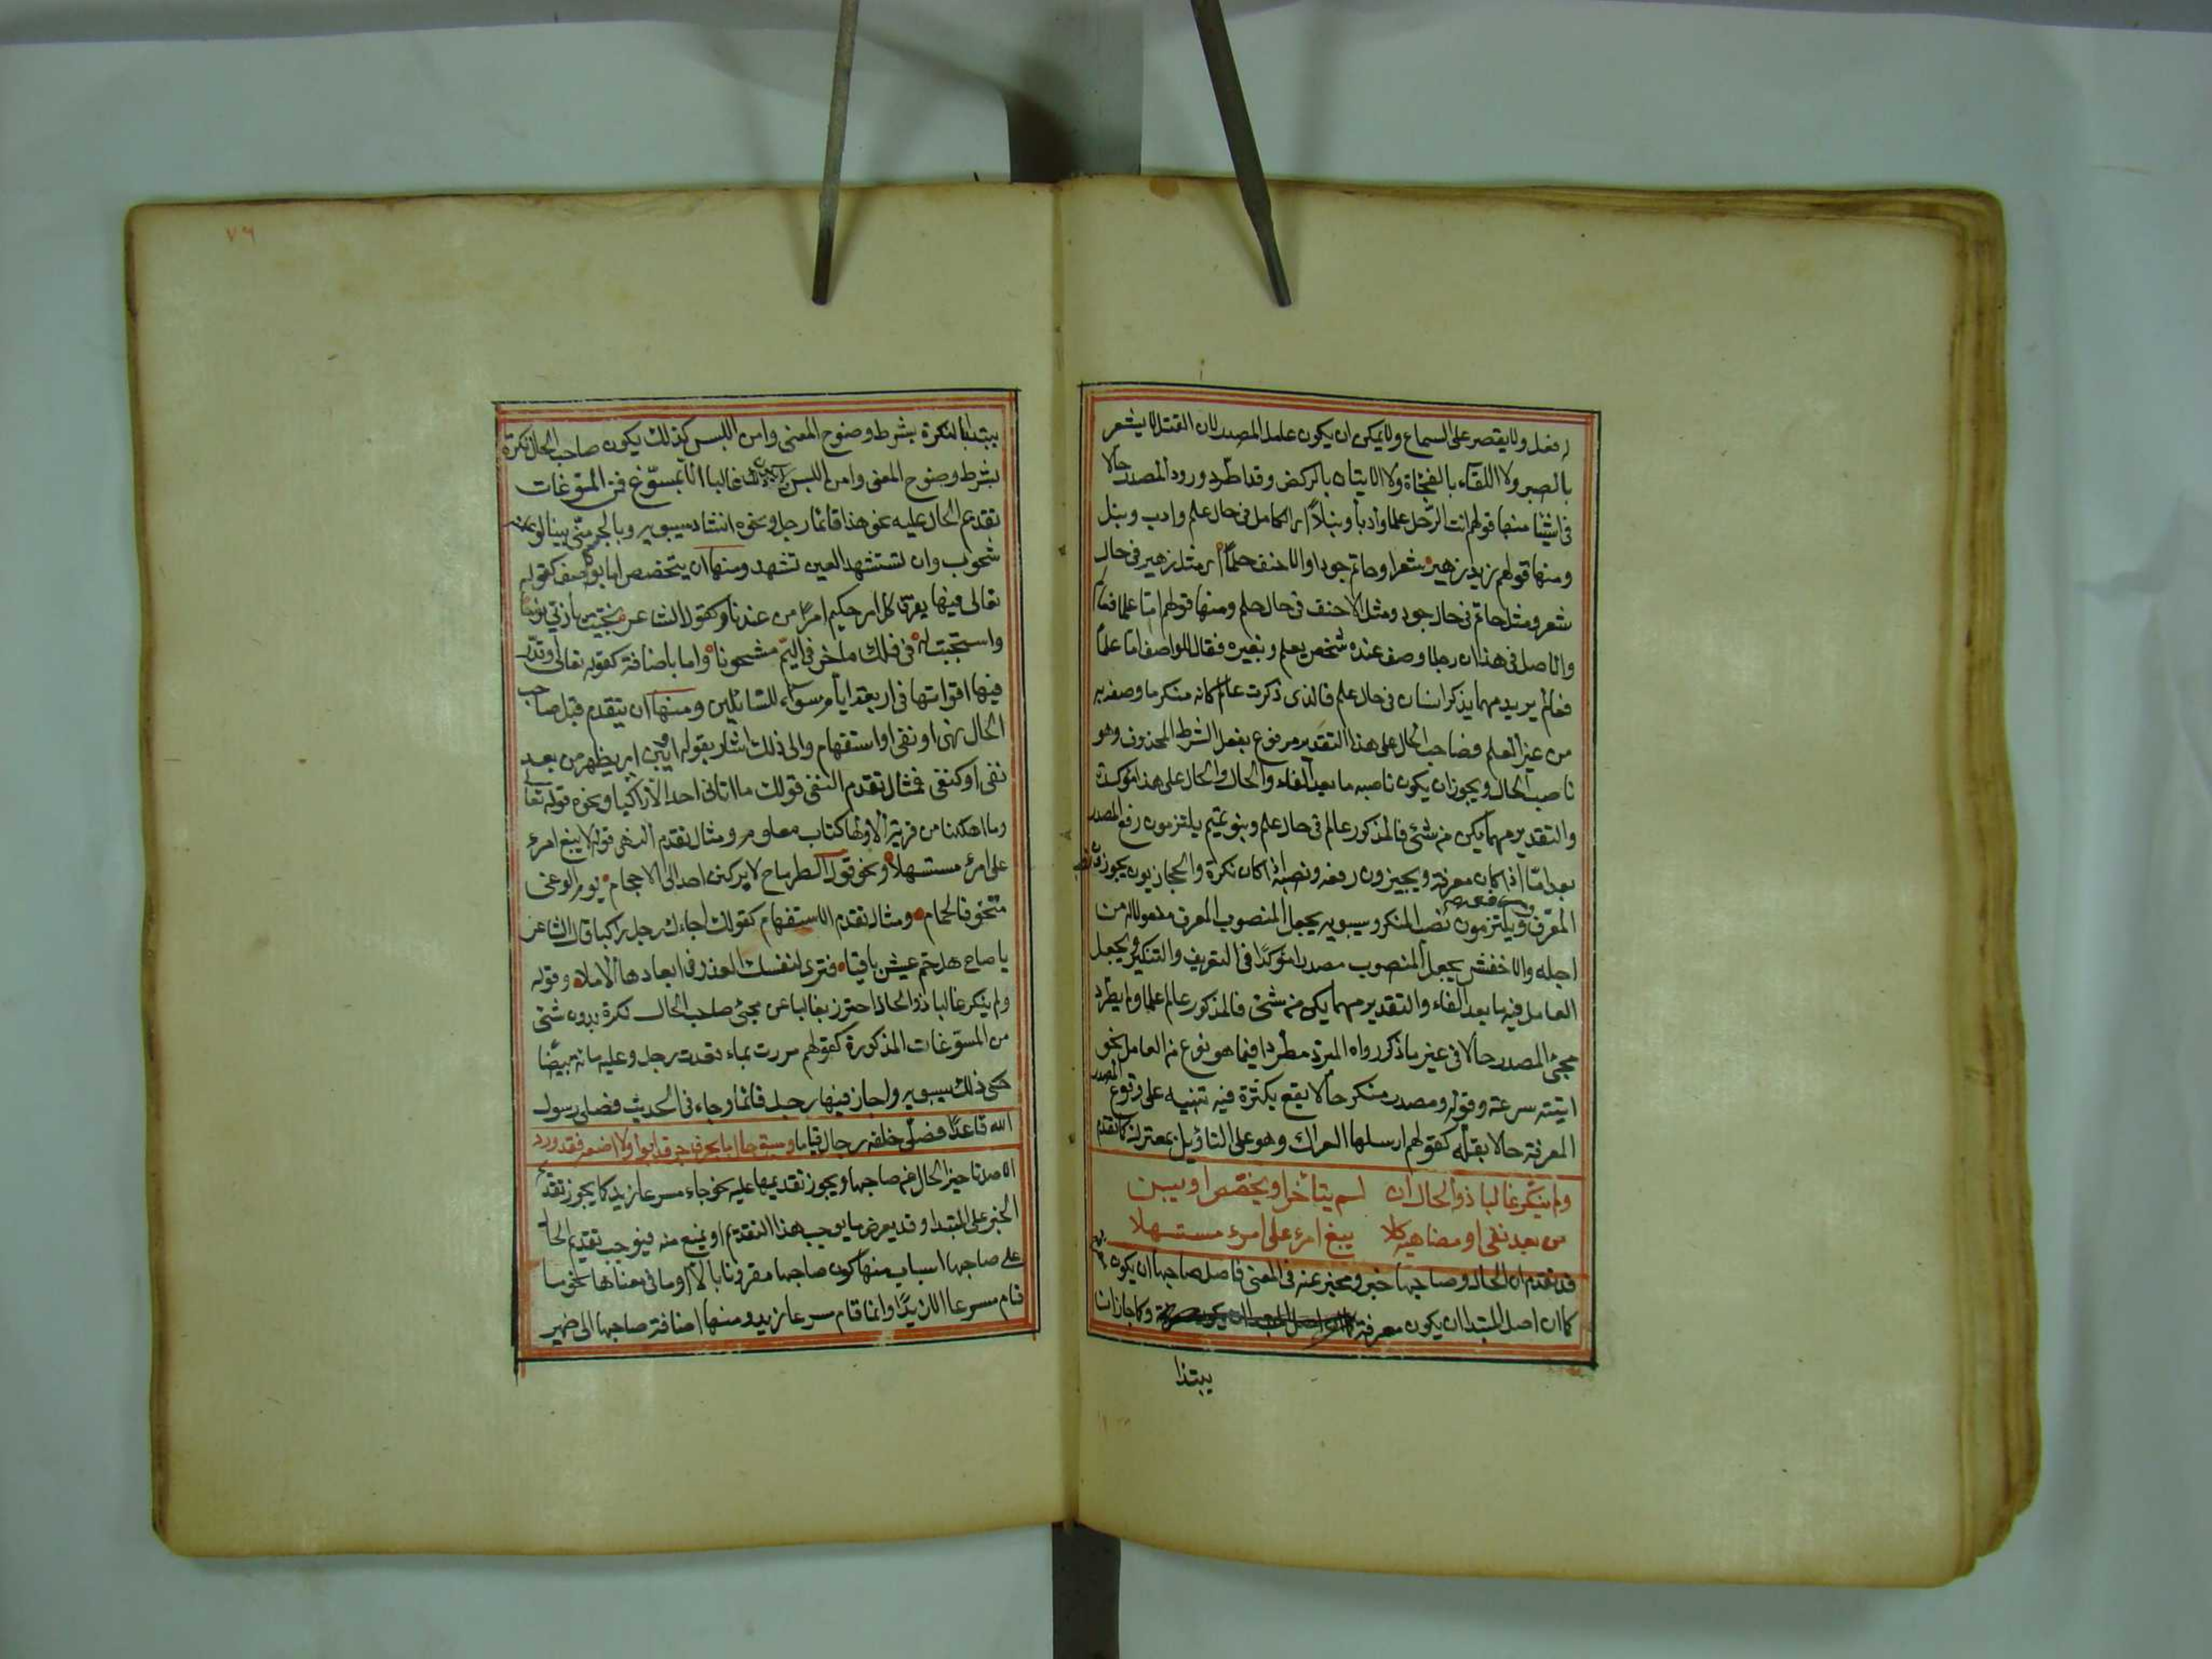 له فعل ولا يقصر على السماع ولا يمكن ان يكون عامل المصدر لان القتل لا يشعر
بالصبر ولا اللقاء بالفجاة ولا الاتيان بالركض وقد اطرد ورود المصدر حالا
في اشيا منها قولهم انت الرجل علما وأدبا ونبلاً اى الكامل في حال علم وادب ونبل
ومنها قولهم زيد زهير شعرا وحاتم جودا والاحنف حلماً اى مثل زهير في حال
شعر ومثل حاتم في حال جود ومثل الاحنف في حال حلم ومنها قولهم امّا علما فعالم
والاصل في هذا ان رجلا وصف عنده شخص بعلم وبغيره فقال للواصف اما علماً
فعالم يريد مهما يذكر انسان في حال علم فالذى ذكرت عالم كانه منكر ما وصفه به
من غير العلم فصاحب الحال على هذا التقدير مرفوع بفعل الشرط المحذوف وهو
ناصب الحال ويجوز ان يكون ناصبه ما بعد الفاء والحال على هذا مؤكدة
والتقدير مهما يكن من شئ فالمذكور عالم في حال علم وبنو تميم يلتزمون رفع المصدر
بعد امّا اذا كان معرفة ويجيزون رفعه ونصبه اذا كان نكرة والحجازيون يجوز
المعرّف ويلتزمون نصب المنكر وسيبويه يجعل المنصوب المعرف مفعولا له من
اجله والاخفش يجعل المنصوب مصدرا مؤكدًا في التعريف والتنكير ويجعل
العامل فيه ما بعد الفاء والتقدير مهما يكن من شئ فالمذكور عالم علما ولم يطرد
مجئ المصدر حالا في غير ما ذكر رواه المبرد مطردا فيما هو نوع من العامل نحو
اتيته سرعة وقوله ومصدر منكر حالا يقع بكثرة فيه تنبيه على وقوع المصدر
المعرفة حالا بقلّه كقولهم ارسلها العراك وهو على التاويل بمعتركة كما تقدم
ولم ينكّر غالبا ذو الحال ان لم يتاخر او يخصّص او يبين
من بعد نفى او مضاهيه كلا يبغ امرء على امرء مستسهلا
قد تقدم ان الحال وصاحبها خبر ومخبر عنه في المعنى فاصل صاحبها ان يكون
كما ان اصل المبتدا ان يكون معرفة وكما جاز ان
يبتدا
٧٦
يبتدا بالنكرة بشرط وضوح المعنى وامن اللبس كذلك يكون صاحب الحال نكرة
بشرط وضوح المعنى وامن اللبس غالبا الا بمسوّغ فمن المسوّغات
تقدم الحال عليه نحو هذا قائما رجل ونحوه انشاد سيبويه وبالجسم منّى بينا لو علمته
شحوب وان تستشهد العين تشهد ومنها ان يتخصص اما بوصف كقوله
تعالى فيها يفرق كل امر حكيم امرًا من عندنا وكقول الشاعر نجّيت يا ربّ نوحا
واستجبت له في فلك ماخر في اليمّ مشحونا واما باضافة كقوله تعالى وقدّر
فيها اقواتها في اربعة ايام سواء للسائلين ومنها ان يتقدم قبل صاحب
الحال نهى او نفى او استفهام والى ذلك اشار بقوله او يبن اى يظهر من بعد
نفى او كنفى فمثال تقدم النفى قولك ما اتانى احد الا راكبا ونحوه قوله تعالى
وما اهلكنا من قرية الا ولها كتاب معلوم ومثال تقدم النهى قوله لا يبغ امرء
على امرء مستسهلاً ونحو قول الطرماح لا يركنن احد الى الاحجام يوم الوغى
متخوفا لحمام ومثال تقدم الاستفهام كقولك اجاءك رجل راكبا قال الشاعر
يا صاح هل حمّ عيش باقيا فترى لنفسك العذر في ابعادها الاملا وقوله
ولم ينكر غالبا ذو الحال احترز بغالبا عن مجئ صاحب الحال نكرة بدون شئ
من المسوّغات المذكورة كقولهم مررت بماء قعدت رجل وعليه مائة بيضًا
حكى ذلك سيبويه واجاز فيها رجل قائما وجاء في الحديث فصلى رسول
الله قاعداً وصلّى خلفه رجال قياما وسبق حال ما بحرف جر قد ابوا ولا امنعه فقد ورد
الاصل تاخير الحال عن صاحبها ويجوز تقديمها عليه نحو جاء مسرعا زيد كما يجوز تقدم
الخبر على المبتدا وقد يعرض ما يوجب هذا التقديم او يمنع منه فيوجب تقديم الحال
على صاحبها اسباب منها كون صاحبها مقرونا بالا او ما في معناها نحو ما
قام مسرعا الا زيدًا وانما قام مسرعا زيد ومنها اضافة صاحبها الى ضمير